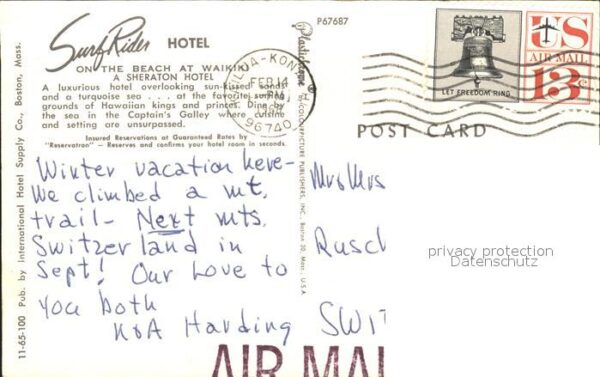 Surf Rider HOTEL
ON THE BEACH AT WAIKIKI
A SHERATON HOTEL
A luxurious hotel overlooking sun-kissed sands
and a turquoise sea . . . at the favorite surfing
grounds of Hawaiian kings and princes. Dine by
the sea in the Captain's Galley where cuisine
and setting are unsurpassed.
Insured Reservations at Guaranteed Rates by
"Reservatron" — Reserves and confirms your hotel room in seconds.
Winter vacation here-
We climbed a mt.
trail- Next mts.
Switzerland in
Sept! Our Love to
you both
H&A Harding
11-65-100 Pub. by International Hotel Supply Co., Boston, Mass.
P67687
Plastichrome
COLORPICTURE PUBLISHERS, INC., Boston 30, Mass., U.S.A.
KAILUA-KONA
FEB 14
PM
96740
LET FREEDOM RING
US
AIR MAIL
13c
POST CARD
Mr&Mrs
Rusc
SWIT
privacy protection
Datenschutz
AIR MAI